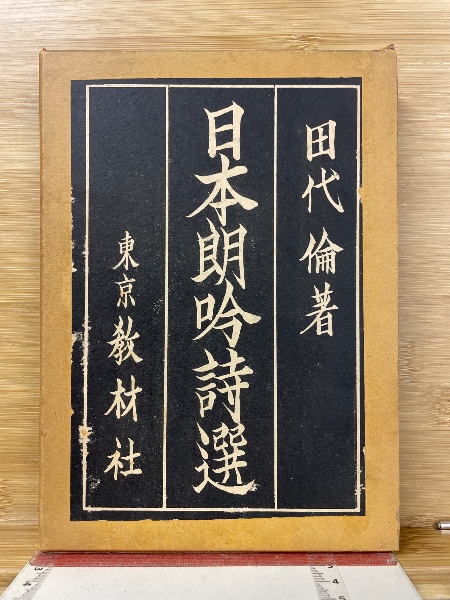 田代倫著
日本朗吟詩選
東京教材社